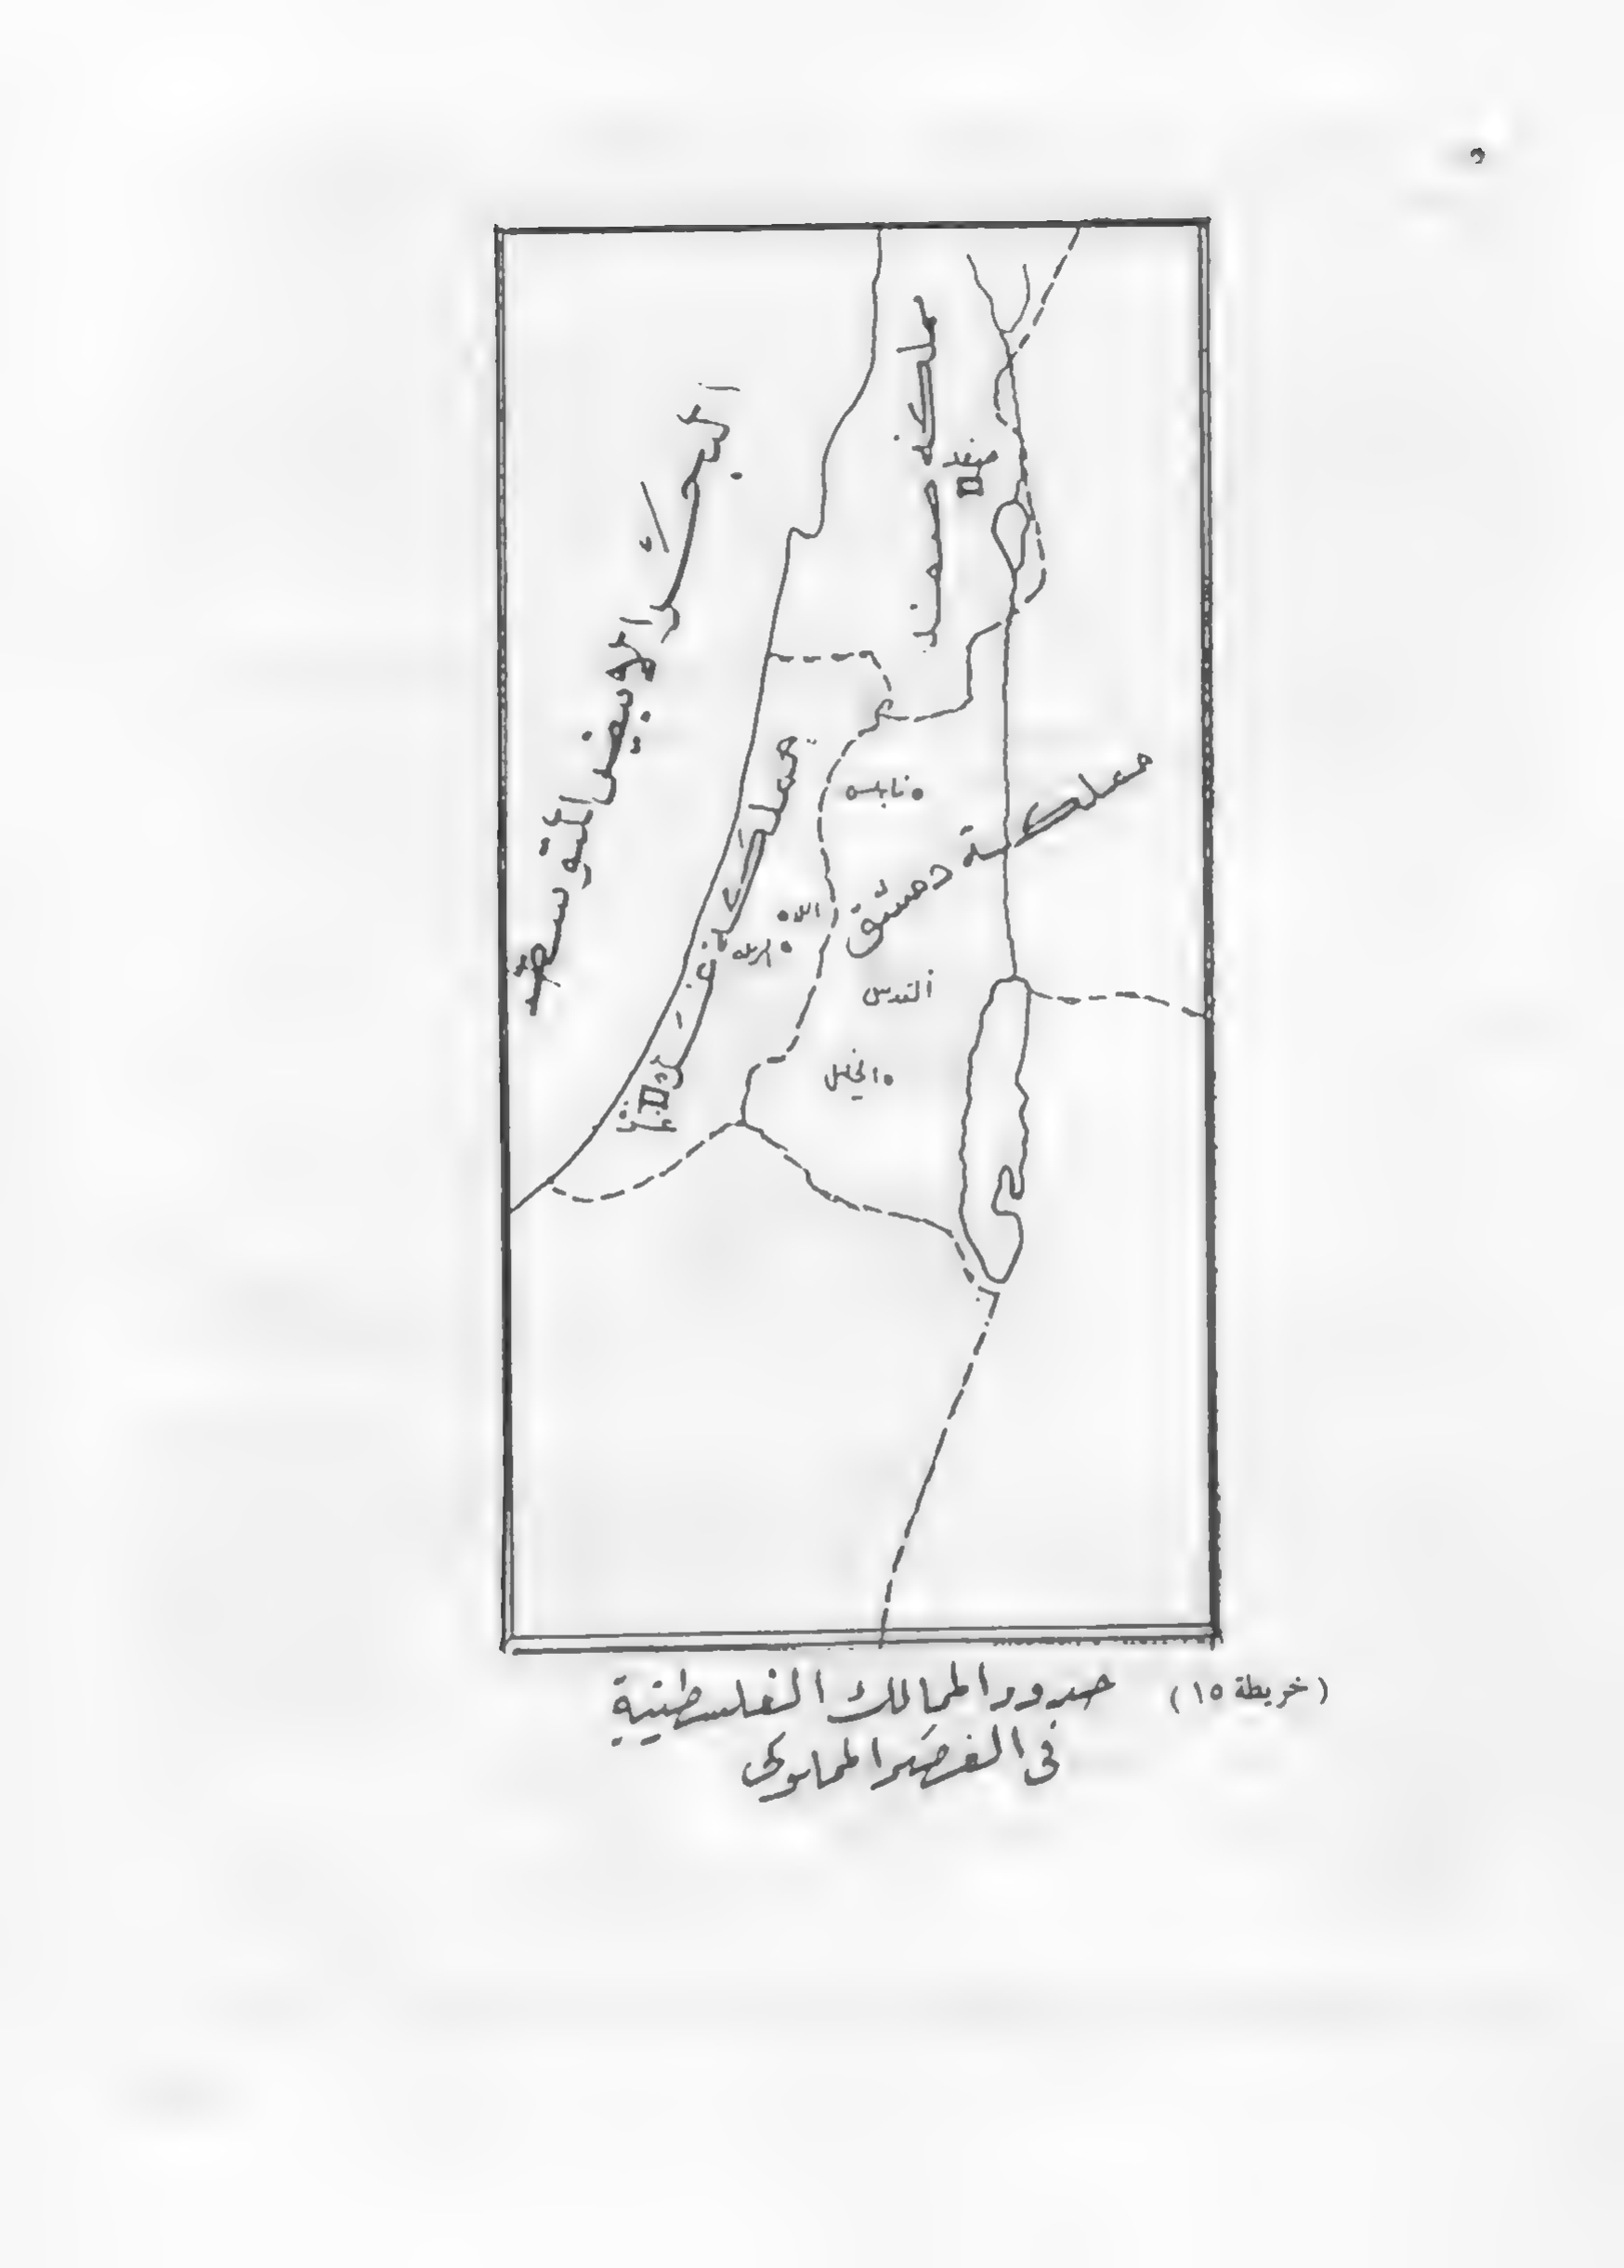 البحر الأبيض المتوسط
مملكة صفد
صفد
مملكة غزة
غزة
نابلس
مملكة دمشق
اللد
الرملة
القدس
الخليل
(خريطة ١٥) حدود الممالك الفلسطينية
في العصر المملوكي